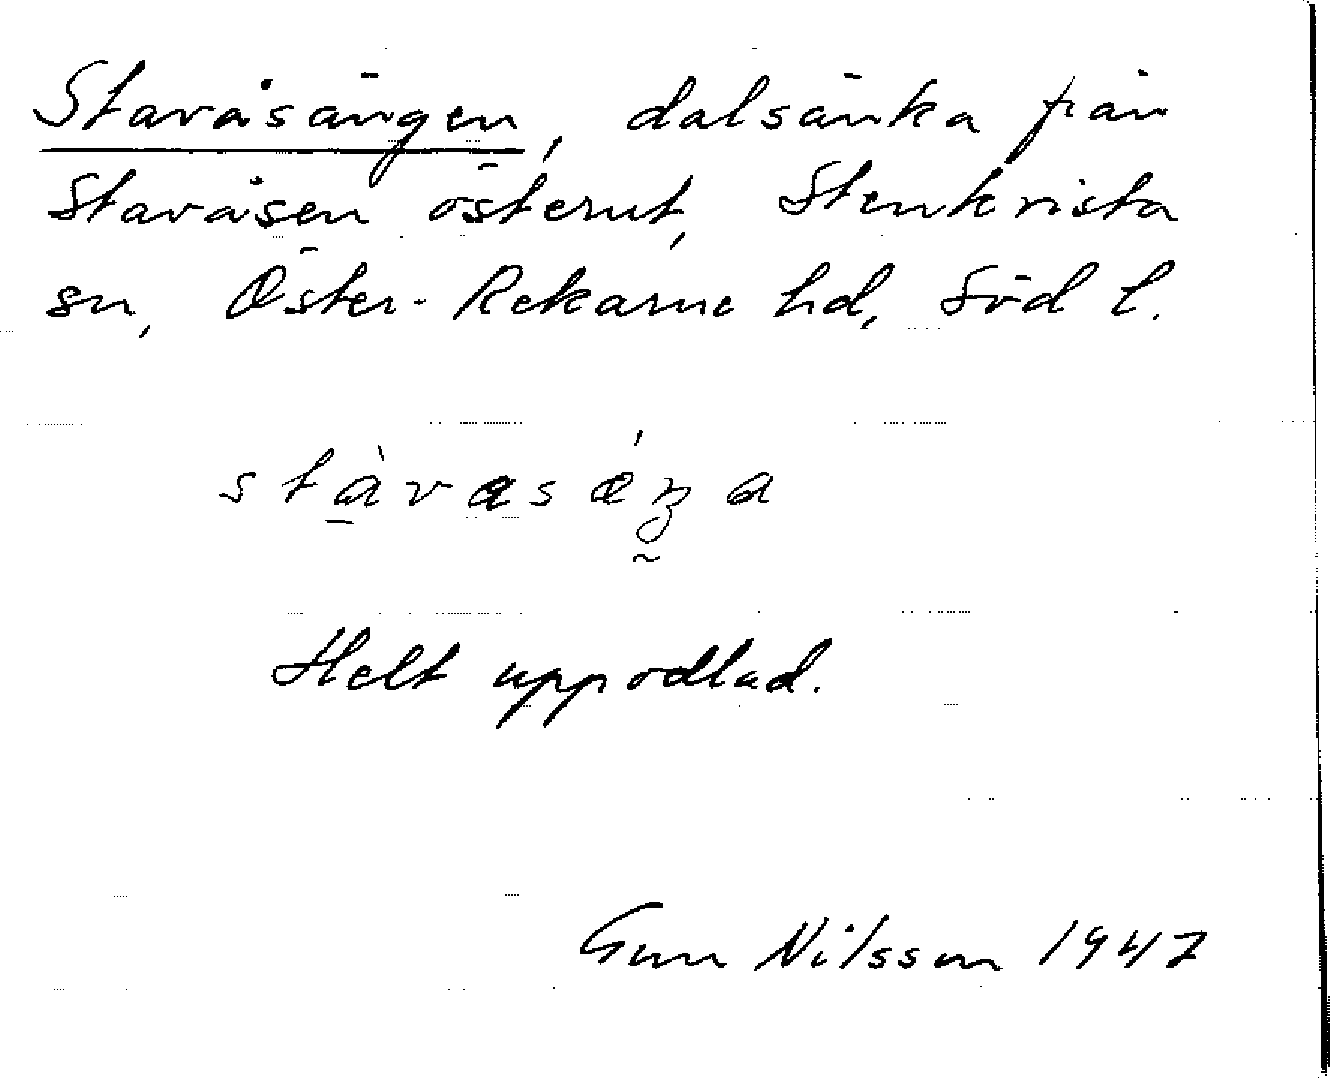 Stavåsängen, dalsänka från
Stavåsen österut, Stenkvista
sn, Öster-Rekarne hd, Söd l.
Helt uppodlad.
Gun Nilsson 1947